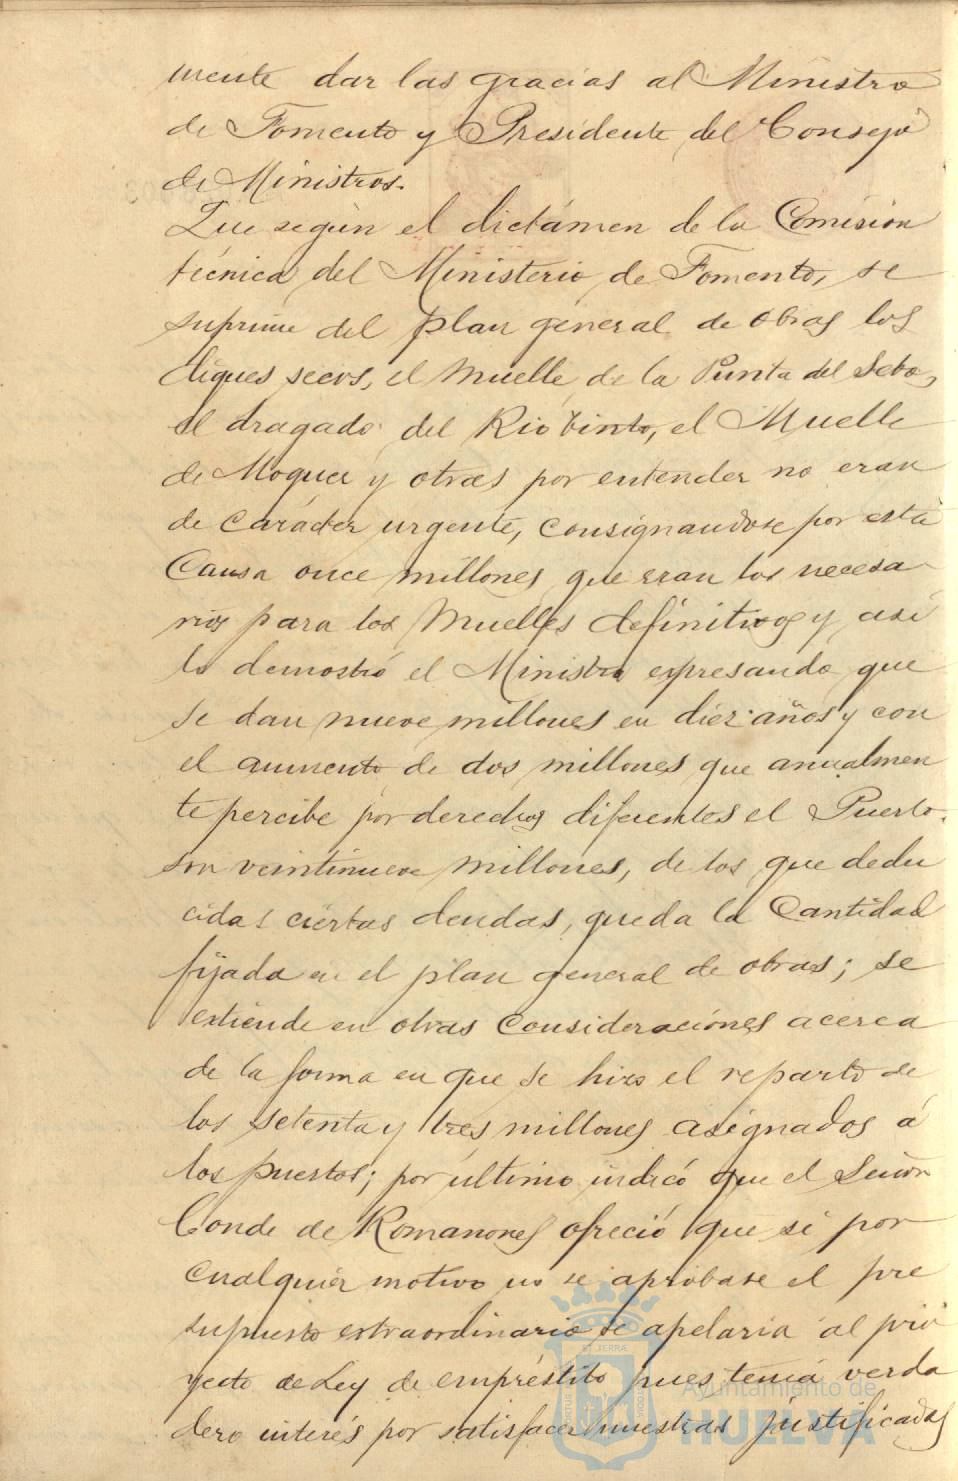 mente dar las gracias al Ministro
de Fomento y Presidente del Consejo
de Ministros.
Que según el dictámen de la Comision
técnica del Ministerio de Fomento, se
suprime del plan general de obras los
diques secos, el Muelle de la Punta del Sebo,
el dragado del Rio tinto, el Muelle
de Moguer y otras por entender no eran
de carácter urgente, consignandose por esta
causa once millones que eran los necesa
rios para los Muelles definitivos y así
lo demostró el Ministro expresando que
se dan nueve millones en diez años y con
el aumento de dos millones que anualmen
te percibe por derechos diferentes el Puerto.
son veintinueve millones, de los que dedu
cidas ciertas deudas, queda la cantidad
fijada en el plan general de obras; se
extiende en otras consideraciones acerca
de la forma en que se hizo el reparto de
los setenta y tres millones asignados á
los puertos; por último indicó que el Señor
Conde de Romanones ofreció que si por
cualquier motivo no se aprobase el pre
supuesto extraordinario se apelaria al pro
yecto de Ley de empréstito pues tenia verda
dero interés por satisfacer nuestras justificadas
Ayuntamiento de
HUELVA